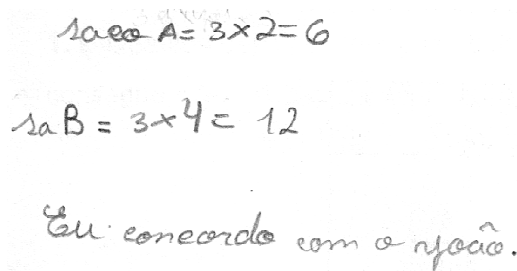 saco A = 3×2=6
sa B = 3×4= 12
Eu concordo com o João.